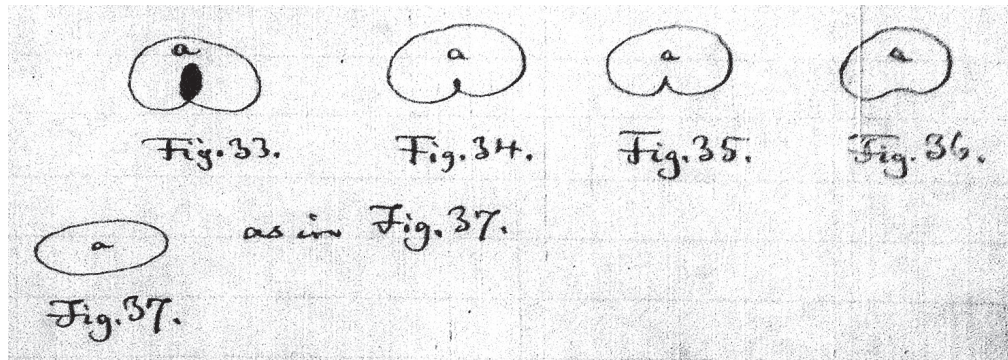 a a a a
Fig. 33. Fig. 34. Fig. 35. Fig. 36.
a as in Fig. 37.
Fig. 37.